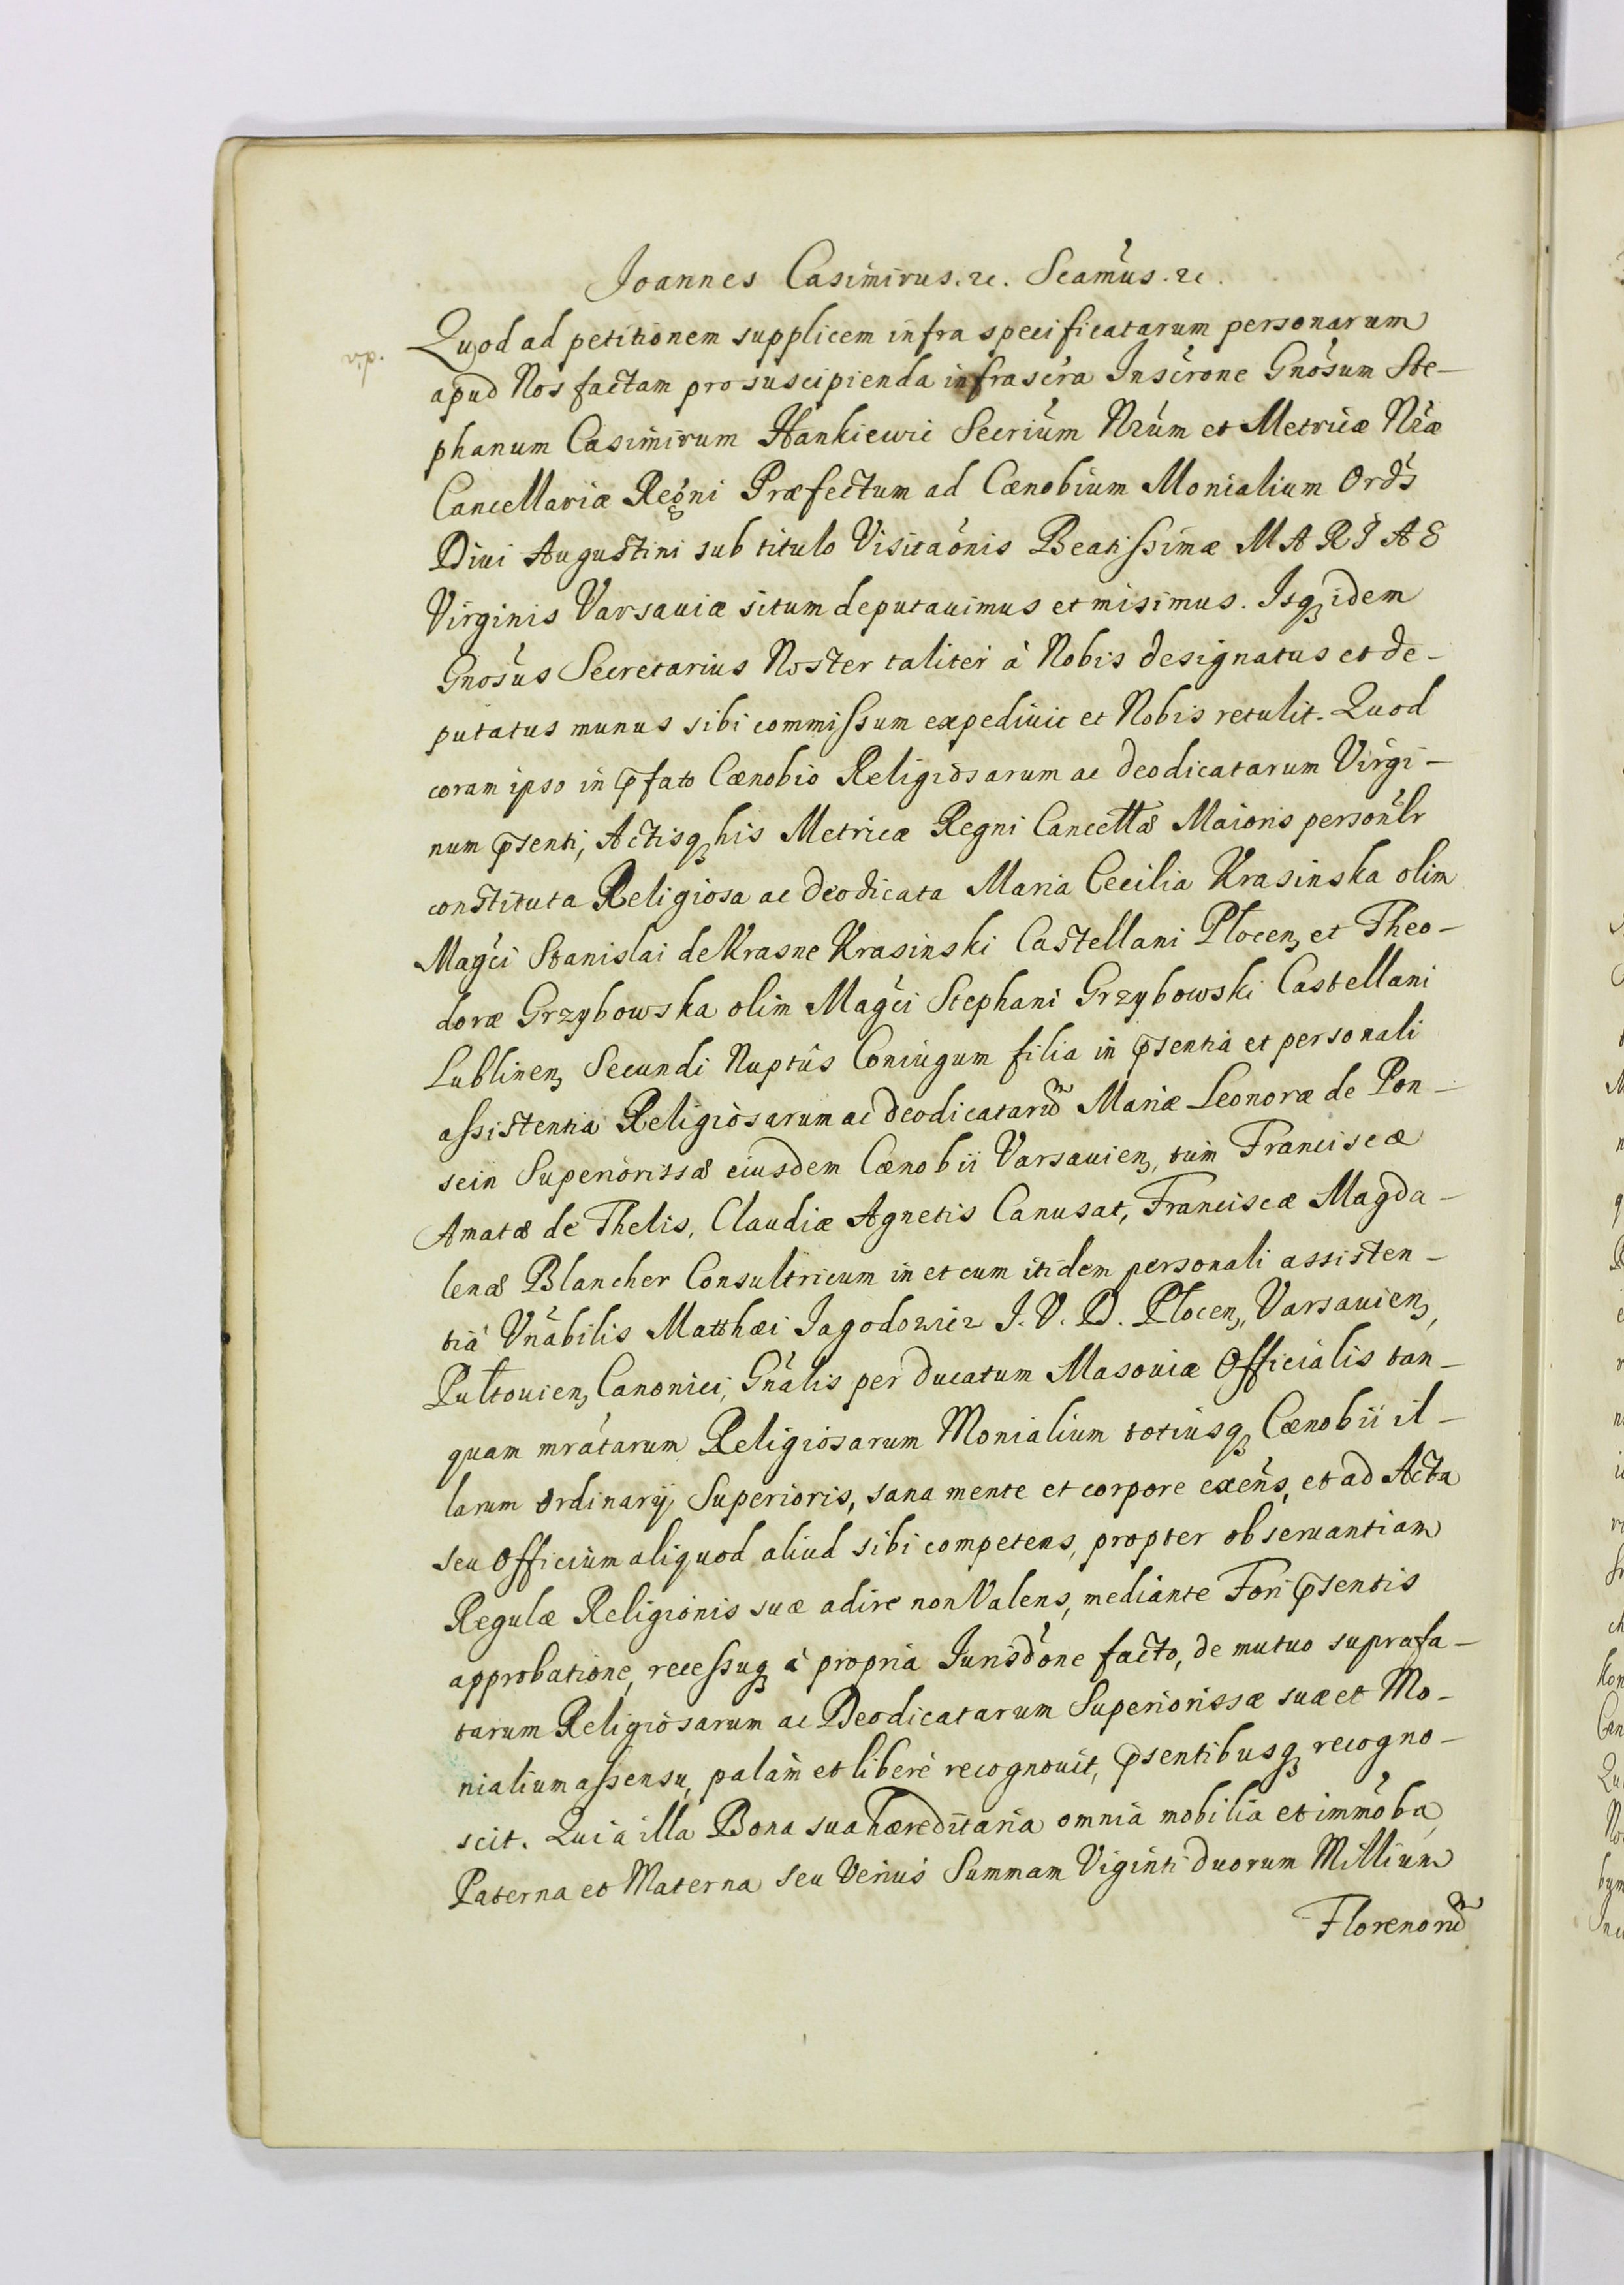 Joannes Casimirus. &c. Scamus. &c.
Quod ad petitionem supplicem infra specificatarum personarum
apud Nos factam pro suscipienda infrascra Inscrone Gnosum Ste-
phanum Casimirum Hankiewic Secrium Nrum et Metricæ Nræ
Cancellariæ Regni Præfectum ad Cœnobium Monialium Ordis
Diui Augustini sub titulo Visitaonis Beatissimæ MARIAE
Virginis Varsauiæ situm deputauimus et misimus. Isq idem
Gnosus Secretarius Noster taliter à Nobis designatus et de-
putatus munus sibi commissum expediuit et Nobis retulit. Quod
coram ipso in pfato Cœnobio Religiosarum ac deodicatarum Virgi-
num psenti, Actisq his Metricæ Regni Cancellæ Maioris personlr
constituta Religiosa ac deodicata Maria Cecilia Krasinska olim
Magci Stanislai de Krasne Krasinski Castellani Plocen, et Theo-
doræ Grzybowska olim Magci Stephani Grzybowski Castellani
Lublinen, Secundi Nuptûs Coniugum filia in psentia et personali
assistentia Religiosarum ac deodicatarum Mariæ Leonoræ de Pon-
sein Superiorissæ eiusdem Cœnobii Varsauien, tum Franciscæ
Amatæ de Thelis, Claudiæ Agnetis Canusat, Franciscæ Magda-
lenæ Blancher Consultricum in et cum itidem personali assisten-
tia Vnabilis Matthæi Jagodowicz J. V. D. Plocen, Varsauien,
Pultouien, Canonici, Gnalis per ducatum Masouiæ Officialis tan-
quam mratarum Religiosarum Monialium totiusq Cœnobii il-
larum ordinarij Superioris, sana mente et corpore exens, et ad Acta
seu Officium aliquod aliud sibi competens, propter obseruantiam
Regulæ Religionis suæ adire non Valens, mediante Fori psentis
approbatione, recessuq à propria Jurisdone facto, de mutuo suprafa-
tarum Religiosarum ac Deodicatarum Superiorissæ suæ et Mo-
nialium assensu, palam et liberè recognouit, psentibusq recogno-
scit. Quia illa Bona sua hæreditaria omnia mobilia et immoba,
Paterna et Materna seu Verius Summam Viginti duorum Millium
Florenorum